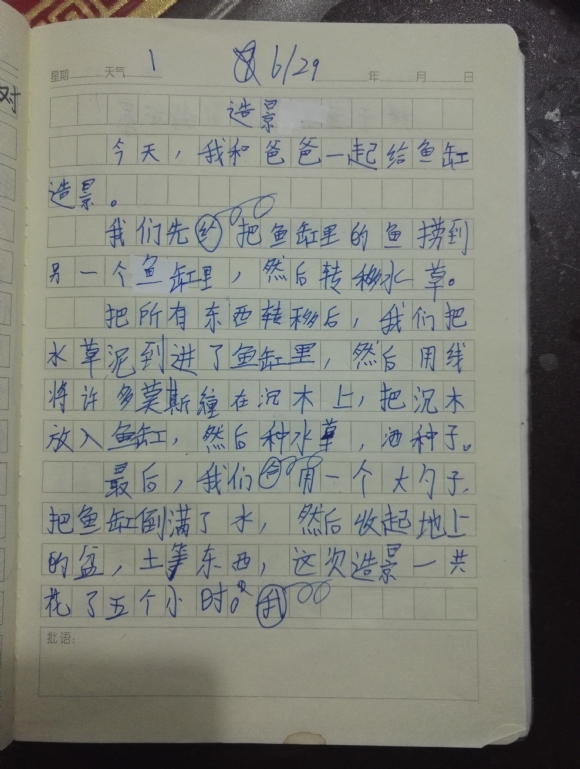 星期 天气 1 6/29 年 月 日
对
造景
今天，我和爸爸一起给鱼缸
造景。
我们先把鱼缸里的鱼捞到
另一个鱼缸里，然后转移水草。
把所有东西转移后，我们把
水草泥到进了鱼缸里，然后用线
将许多莫斯缠在沉木上，把沉木
放入鱼缸，然后种水草，洒种子。
最后，我们用一个大勺子，
把鱼缸倒满了水，然后收起地上
的盆，土等东西，这次造景一共
花了五个小时。
批语：